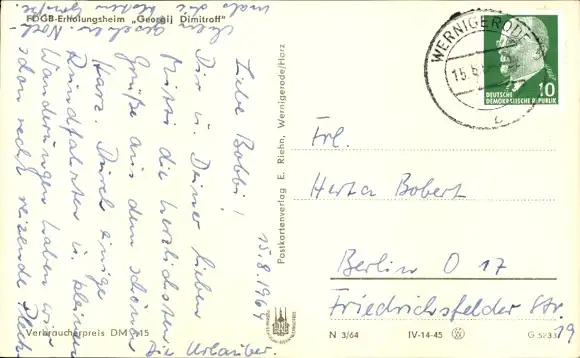 FDGB-Erholungsheim „Georgij Dimitroff"
15.8.1964
Liebe Bobbi!
Dir u. Deiner lieben
Mutti die herzlichsten
Grüße aus dem schönen
Harz. Durch einige
Rundfahrten u. kleinen
Wanderungen haben wir
schon recht reizende
gesehen. Noch-
mals die
Grüße
Die Urlauber.
Verbraucherpreis DM 0,15
Postkartenverlag E. Riehn, Wernigerode/Harz
WERNIGERODE
15.8
DEUTSCHE
DEMOKRATISCHE REPUBLIK
10
Frl.
Herta Bobert
Berlin O 17
Friedrichsfelder Str.
19
N 3/64 IV-14-45